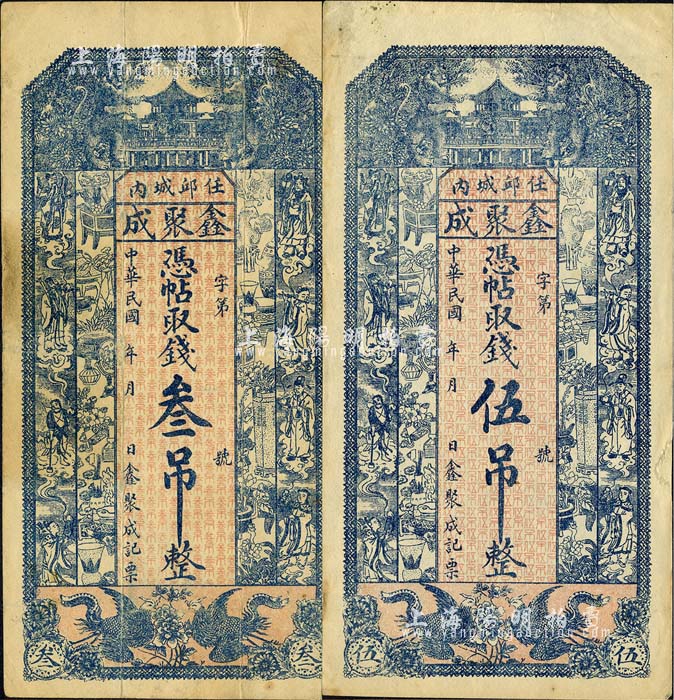 上海陽明拍賣
www.yangmingauction.com
內城邱任
成聚鑫
字第 號
憑帖取錢叁吊整
中華民國 年 月 日鑫聚成記票
叁 叁
上海陽明拍賣
www.yangmingauction.com
內城邱任
成聚鑫
字第 號
憑帖取錢伍吊整
中華民國 年 月 日鑫聚成記票
伍 伍
上海陽明拍賣
www.yangmingauction.com